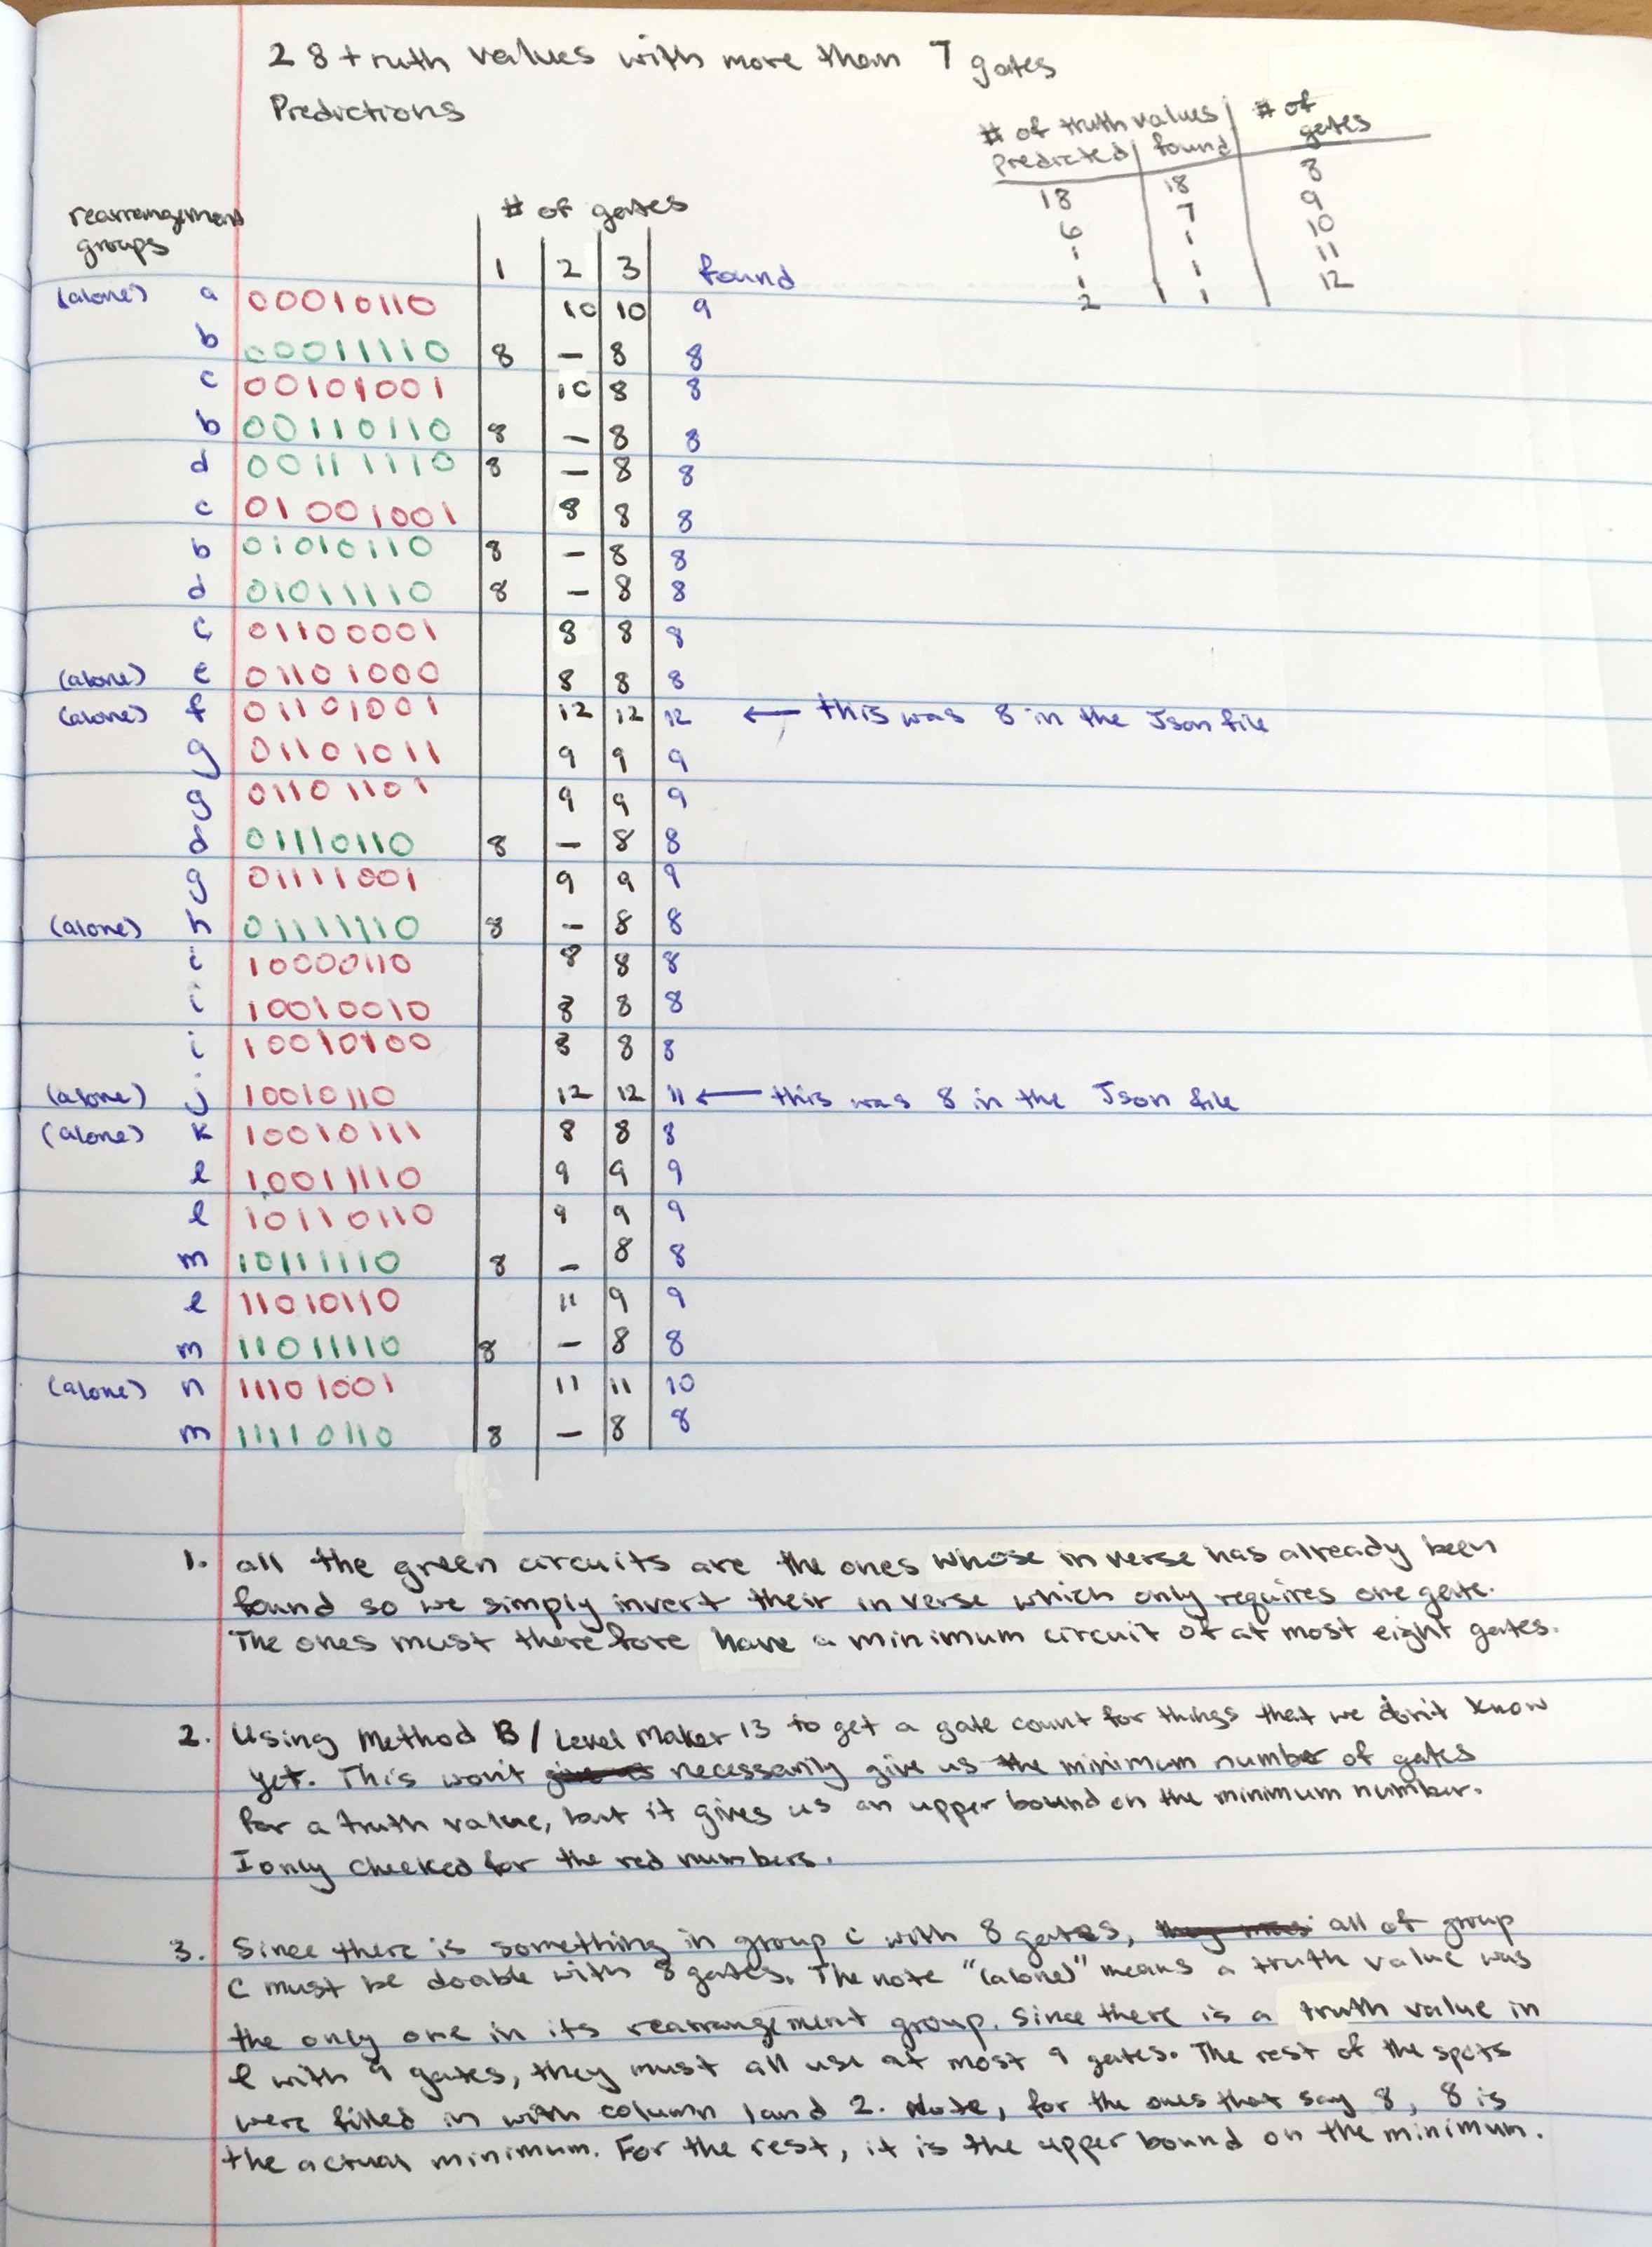 28 truth values with more than 7 gates
Predictions
# of truth values | # of gates
predicted | found
18 | 18 | 8
6 | 7 | 9
1 | 1 | 10
1 | 1 | 11
2 | 1 | 12
rearrangement groups
# of gates
1 | 2 | 3 | found
(alone) a 00010110 10 10 9
b 00011110 8 – 8 8
c 00101001 10 8 8
b 00110110 8 – 8 8
d 00111110 8 – 8 8
c 01001001 8 8 8
b 01010110 8 – 8 8
d 01011110 8 – 8 8
c 01100001 8 8 8
(alone) e 01101000 8 8 8
(alone) f 01101001 12 12 12 ← this was 8 in the Json file
g 01101011 9 9 9
g 01101101 9 9 9
d 01110110 8 – 8 8
g 01111001 9 9 9
(alone) h 01111110 8 – 8 8
i 10000110 8 8 8
i 10010010 8 8 8
i 10010100 8 8 8
(alone) j 10010110 12 12 11 ← this was 8 in the Json file
(alone) k 10010111 8 8 8
l 10011110 9 9 9
l 10110110 9 9 9
m 10111110 8 – 8 8
l 11010110 11 9 9
m 11011110 8 – 8 8
(alone) n 11101001 11 11 10
m 11110110 8 – 8 8
1. all the green circuits are the ones whose inverse has already been
found so we simply invert their inverse which only requires one gate.
The ones must therefore have a minimum circuit of at most eight gates.
2. Using Method B / Level Maker 13 to get a gate count for things that we don't know
yet. This won't necessarily give us the minimum number of gates
for a truth value, but it gives us an upper bound on the minimum number.
I only checked for the red numbers.
3. Since there is something in group c with 8 gates, all of group
C must be doable with 8 gates. The note "(alone)" means a truth value was
the only one in its rearrangement group. Since there is a truth value in
l with 9 gates, they must all use at most 9 gates. The rest of the spots
were filled in with column 1 and 2. Note, for the ones that say 8, 8 is
the actual minimum. For the rest, it is the upper bound on the minimum.